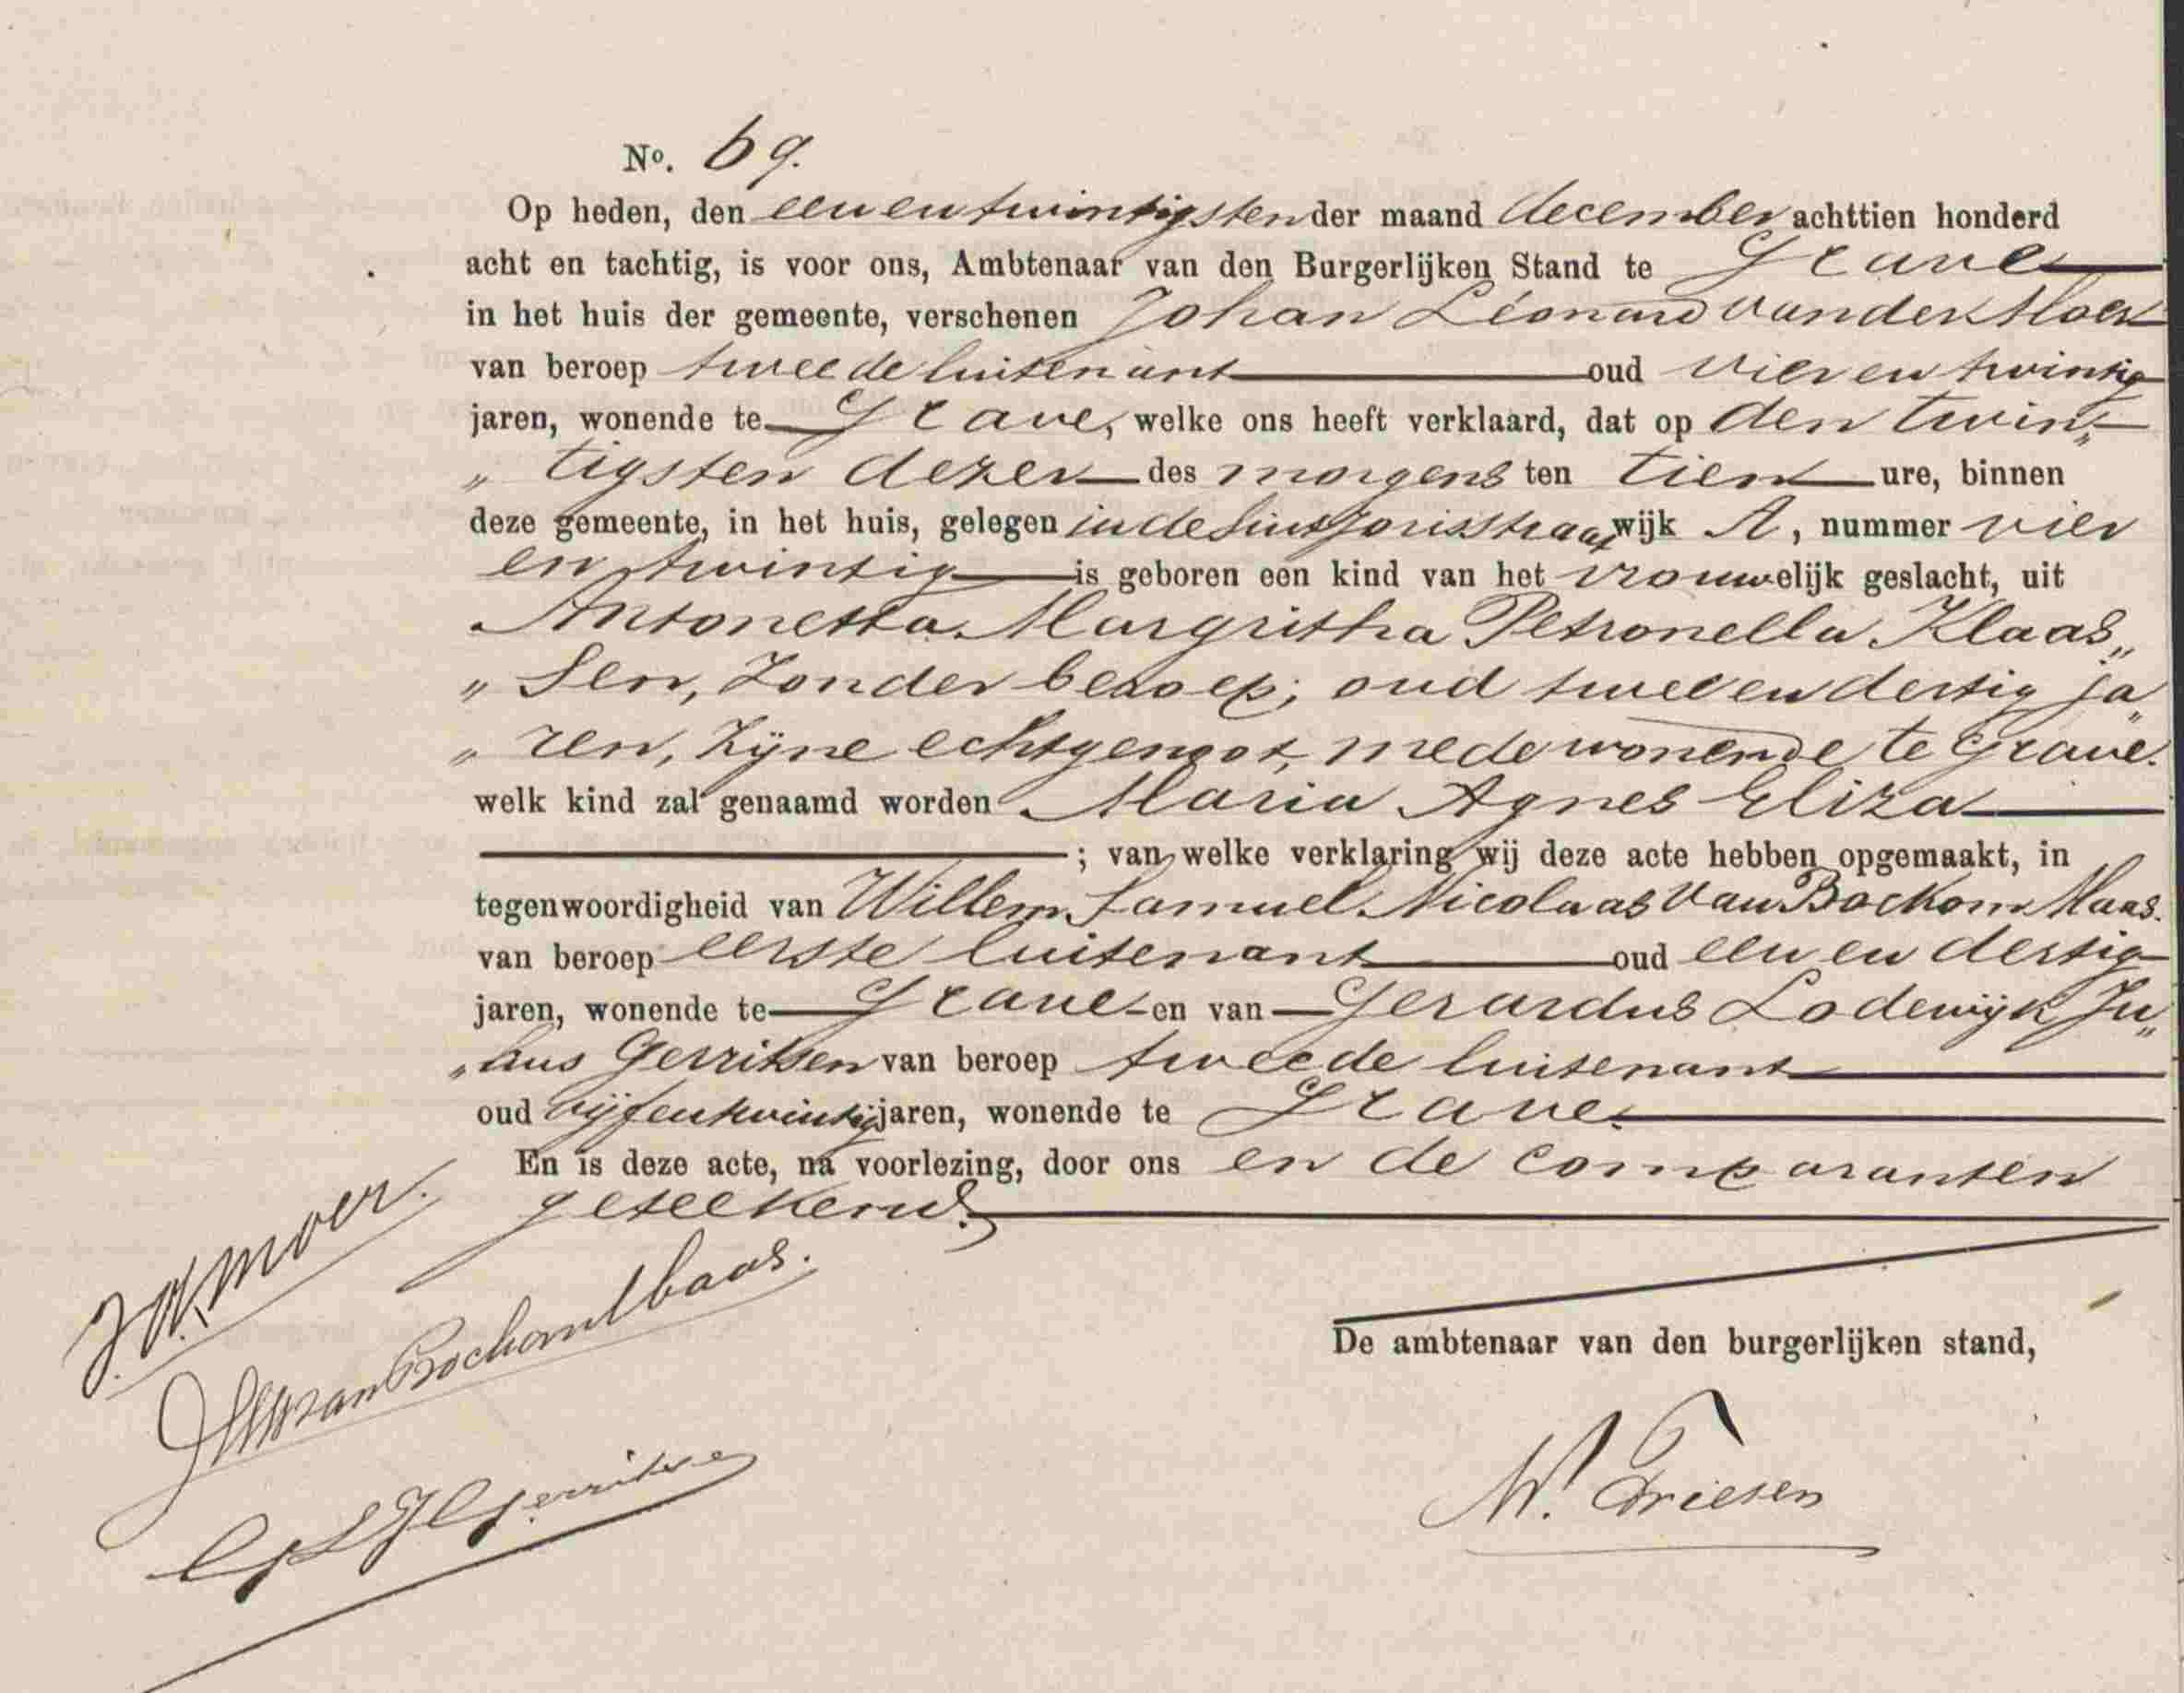 No. 69.
Op heden, den eenentwintigsten der maand december achttien honderd
acht en tachtig, is voor ons, Ambtenaar van den Burgerlijken Stand te Grave
in het huis der gemeente, verschenen Johan Léonard van der Moer
van beroep tweede luitenant oud vier en twintig
jaren, wonende te Grave, welke ons heeft verklaard, dat op den twin„
„tigsten dezer des morgens ten tien ure, binnen
deze gemeente, in het huis, gelegen in de Sint Jorisstraat wijk A, nummer vier
en twintig is geboren een kind van het vrouwelijk geslacht, uit
Antonetta Margritha Petronella Klaas„
„sen, zonder beroep; oud twee en dertig ja„
„ren, zijne echtgenoot, mede wonende te Grave.
welk kind zal genaamd worden Maria Agnes Eliza
; van welke verklaring wij deze acte hebben opgemaakt, in
tegenwoordigheid van Willem Samuel Nicolaas van Bockom Maas.
van beroep eerste luitenant oud een en dertig
jaren, wonende te Grave en van Gerardus Lodewijk Ju„
„lius Gerritsen van beroep tweede luitenant
oud vijfentwintig jaren, wonende te Grave.
En is deze acte, na voorlezing, door ons en de comparanten
geteekend.
van Bockom Maas.
Gerritsen
De ambtenaar van den burgerlijken stand,
W. Driesen